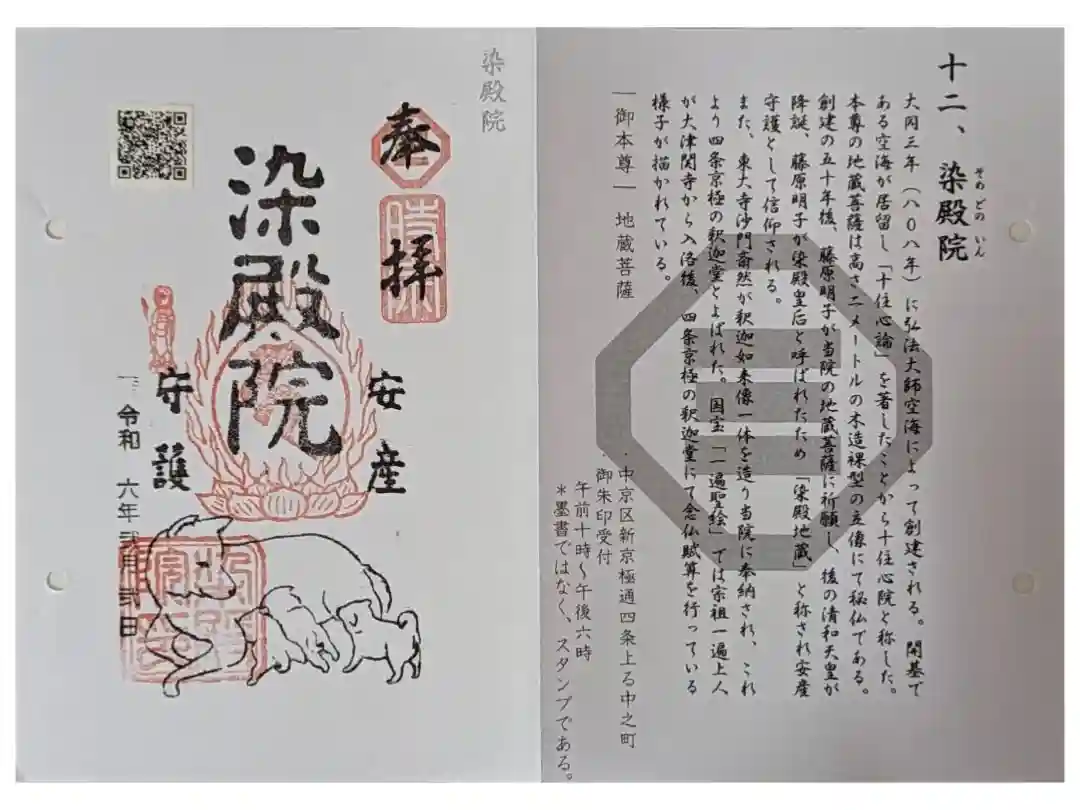 十二、染殿院
そめどの いん
大同三年（八〇八年）に弘法大師空海によって創建される。開基で
ある空海が居留し「十住心論」を著したことから十住心院と称した。
本尊の地蔵菩薩は高さ二メートルの木造裸型の立像にて秘仏である。
創建の五十年後、藤原明子が当院の地蔵菩薩に祈願し、後の清和天皇が
降誕、藤原明子が染殿皇后と呼ばれたため「染殿地蔵」と称され安産
守護として信仰される。
また、東大寺沙門奝然が釈迦如来像一体を造り当院に奉納され、これ
より四条京極の釈迦堂とよばれた。国宝「一遍聖絵」では宗祖一遍上人
が大津関寺から入洛後、四条京極の釈迦堂にて念仏賦算を行っている
様子が描かれている。
―御本尊―地蔵菩薩
・中京区新京極通四条上る中之町
・御朱印受付
午前十時～午後六時
＊墨書ではなく、スタンプである。
染殿院
奉拝
時宗
染殿院
安産
守護
令和 六年 弐月 弐日